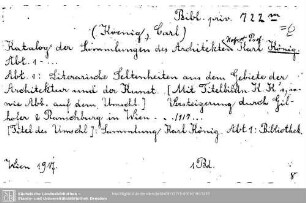 Bibl. priv. 722 m
(Koenig, Carl)
Hofrat Prof.
Katalog der Sammlungen des Architekten Karl König.
Abt. 1 - ...
Abt. 1: Literarische Seltenheiten aus dem Gebiete der
Architektur und der Kunst. [Mit Titelbildn. K. K's, so-
wie Abb. auf dem Umschl.] Versteigerung durch Gil-
hofer & Ranschburg in Wien ... 1917...
[Titel des Umschl.]: Sammlung Karl König. Abt. 1: Bibliothek.
Wien 1917. 1 Bd.
8°
Sächsische Landesbibliothek -
Staats- und Universitätsbibliothek Dresden